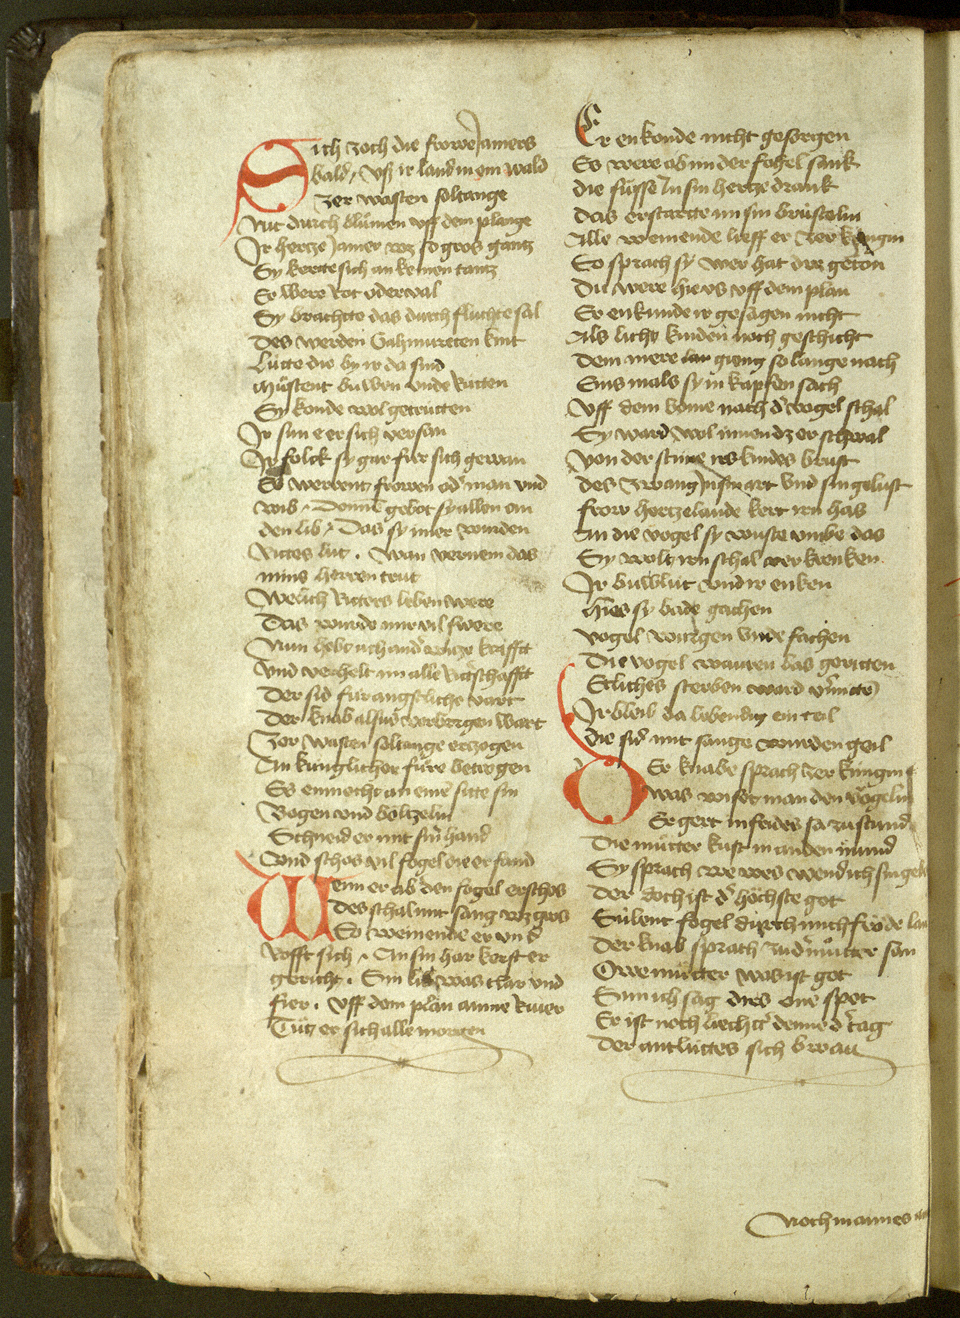 Sich zoch die frowe Jamers
bald / Vsz ir land in ein wald
Zer wasten soltange
Nut durch blůmen vff dem plange
Ir hertze Jamer wz so gros gantz
Sy kerte sich an keinen tantz
Er were rot oder val
Sy brachte das durch fluchte sal
Des werden Gahmureten kint
Lutte die by ir da sind
Můstent buwen vnde rutten
Sy konde wol getrutten
Ir sun e er sich versan
Ir folck sy gar fur sich gewan
Es werent frowen od' man vnd
wib / Denne gebot sy allen an
den lib / Das sy imer wurden
Ritters lut . Wan vernem das
mins herzen trut
Welich Ritters leben were
Das wurde mir vil swere
Nun habt uch and' witze krafft
vnd verhelt im alle Ritt'schafft
Der sid fur angstliche vart
Der knab alsus verborgen wart
Zer Wasten soltange erzogen
An kunglicher fure betrogen
Es enmocht an eine sitte sin
Bogen vnd boltzelin
Schneid er mit sin' hand
Vnd schos vil fogel die er fand
Wenn er ab' den fogel erschos
Des schal mit sang wz gros
So weinende er vnd
Rofft sich / An sin har kerst er
gericht . Sin lib was clar vnd
fier . Vff dem plan anne Rivier
Tůg er sich alle morgen
Er enkonde nicht gesorgen
Es were ob im der fogel sank
die susse In sin hertze drank
Das erstarcte im sin brustelin
Alle weinende lieff er Zer kungin
So sprach sy Wer hat dirz geton
Du were hie vs vff dem plan
Er enkunde ir gesagen nicht
Als licht kinden noch geschicht
Dem mere gieng so lange nach
Eins mals sy in kapfen sach
Vff dem bome nach d' vogel schal
Sy ward wol innen dz er schwal
Von der stime irs kindes brust
des Zwang In sin art vnd sin gelust
frow hertzelaude kert irn has
An die vogel sy wuste vmbe das
Sy wolt irn schal verkrenken
Ir buwlut vnd ir enken
hies sy bade gachen
vogel wurgen vnde fachen
Die vogel wauren bas geritten
Etliches sterben ward v'mitte
Ir bleib da lebendig ein teil
die sid mit sange wurden geil
Der knabe sprach Zer kungin
was wiset man den vogelin
Er gert in frides sa zu stund
Die mutter kust in an den mund
Sy sprach we wes wend ich sin gebot
Der doch ist d' höchste got
Sulent fogel durch mich fröde lan
Der knab sprach zu d' můtter san
Owe můtter was ist got
Sun ich sag dirs one spot
Er ist noch liecht' denne d' tag
Der antluttes sich bewag
Noch mannes